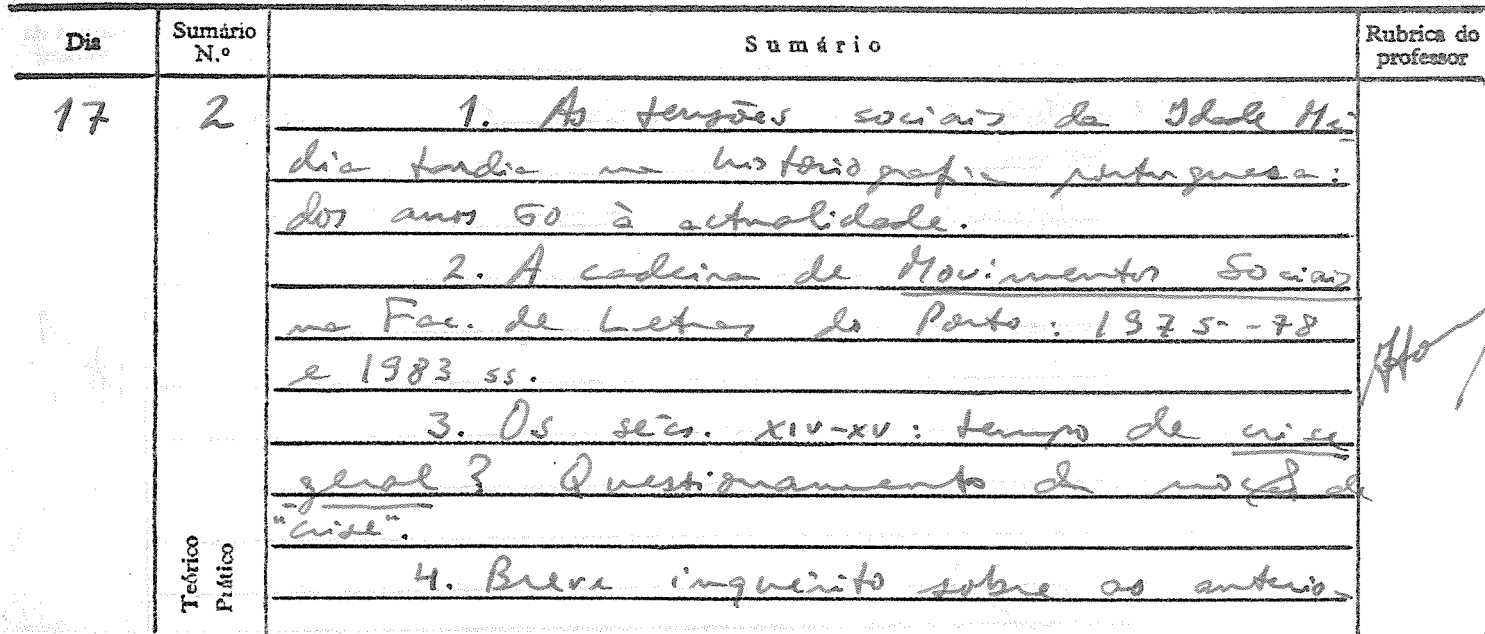 Dia
Sumário N.º
Sumário
Rubrica do professor
17
2
1. As tensões sociais da Idade Mé-
dia tardia na historiografia portuguesa:
dos anos 60 à actualidade.
2. A cadeira de Movimentos Sociais
na Fac. de Letras do Porto: 1975-78
e 1983 ss.
3. Os sécs. XIV-XV: tempo de crise
geral? Questionamento da noção de
"crise".
4. Breve inquérito sobre as anterio-
Teórico
Prático